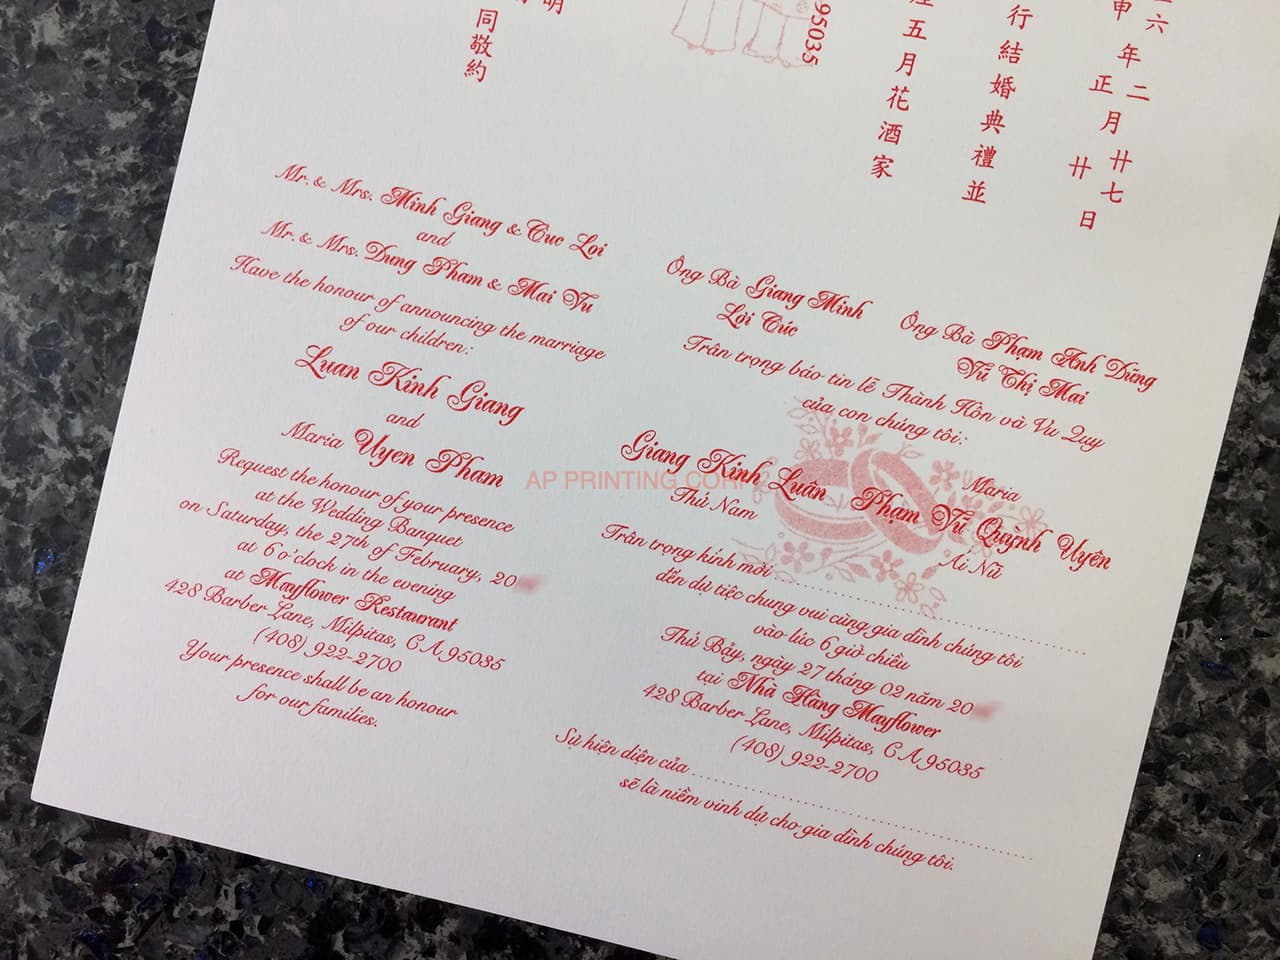 六
申 年 二
正 月 廿 七
廿 日
行 結 婚 典 禮 並
五 月 花 酒 家
95035
明
同 敬 約
Mr. & Mrs. Minh Giang & Cuc Loi
and
Mr. & Mrs. Dung Pham & Mai Vu
Have the honour of announcing the marriage
of our children:
Luan Kinh Giang
and
Maria Uyen Pham
Request the honour of your presence
at the Wedding Banquet
on Saturday, the 27th of February, 20
at 6 o'clock in the evening
at Mayflower Restaurant
428 Barber Lane, Milpitas, CA 95035
(408) 922-2700
Your presence shall be an honour
for our families.
Ông Bà Giang Minh
Lợi Cúc
Ông Bà Phạm Anh Dũng
Vũ Thị Mai
Trân trọng báo tin lễ Thành Hôn và Vu Quy
của con chúng tôi:
Giang Kinh Luân
Thứ Nam
Maria
Phạm Vũ Quỳnh Uyên
Ái Nữ
Trân trọng kính mời ........................................
đến dự tiệc chung vui cùng gia đình chúng tôi
vào lúc 6 giờ chiều
Thứ Bảy, ngày 27 tháng 02 năm 20
tại Nhà Hàng Mayflower
428 Barber Lane, Milpitas, CA 95035
(408) 922-2700
Sự hiện diện của ........................................
sẽ là niềm vinh dự cho gia đình chúng tôi.
AP PRINTING CORP